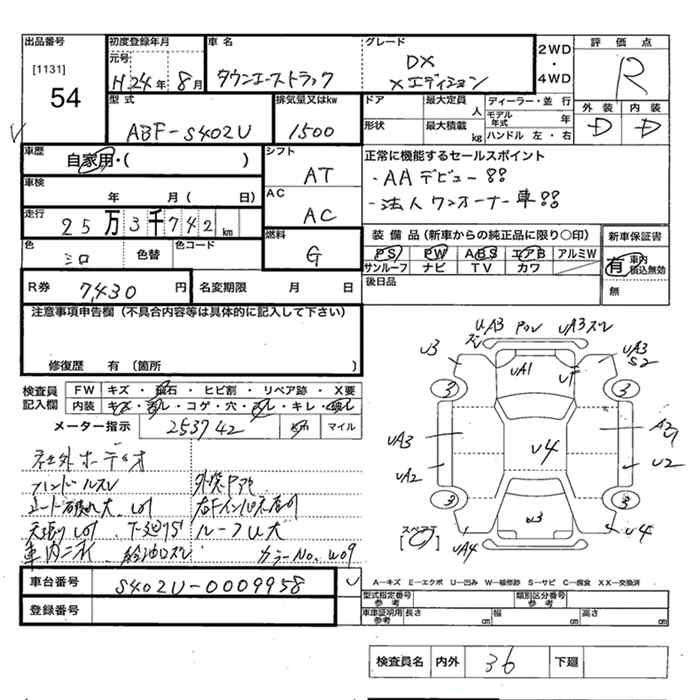 出品番号
[1131]
54
初度登録年月
元号
H 24年 8月
車名
タウンエーストラック
グレード
DX
Xエディション
2WD
・
4WD
評価点
R
外装 内装
D D
型式
ABF-S402U
排気量又はkw
1500
ドア
形状
最大定員 人
最大積載 kg
ディーラー・並行
モデル年式 年
ハンドル 左・右
車歴
自家用・( )
シフト
AT
正常に機能するセールスポイント
・AAデビュー!!
・法人ワンオーナー車!!
車検
年 月( 日)
AC
AC
走行
25万3千742km
装備品(新車からの純正品に限り○印)
PS PW ABS エアB アルミW
サンルーフ ナビ TV カワ
新車保証書
有 車内積込無効
無
色
シロ
色替
色コード
燃料
G
後日品
R券
7,430円
名変期限 月 日
注意事項申告欄(不具合内容等は具体的に記入して下さい)
修復歴 有(箇所 )
検査員記入欄
FW キズ・飛石・ヒビ割・リペア跡・X要
内装 キズ・汚レ・コゲ・穴・スレ・キレ・
メーター指示
253742
km マイル
UA3 PUV UA3
U3
UA3
S2
UA1
U
3 3
UA3
UA2
U4
A2
U2
3 3
U3
スペアT
UA4
U4
社外オーディオ
ハンドルスレ
ルーフU大
カラーNo. W09
車台番号
S402U-0009958
登録番号
A－キズ E－エクボ U－凹み W－補修跡 S－サビ C－腐食 XX－交換済
型式指定番号
参考
類別区分番号
参考
車庫証明用
参考
長さ cm 幅 cm 高さ cm
検査員名 内外 36 下廻